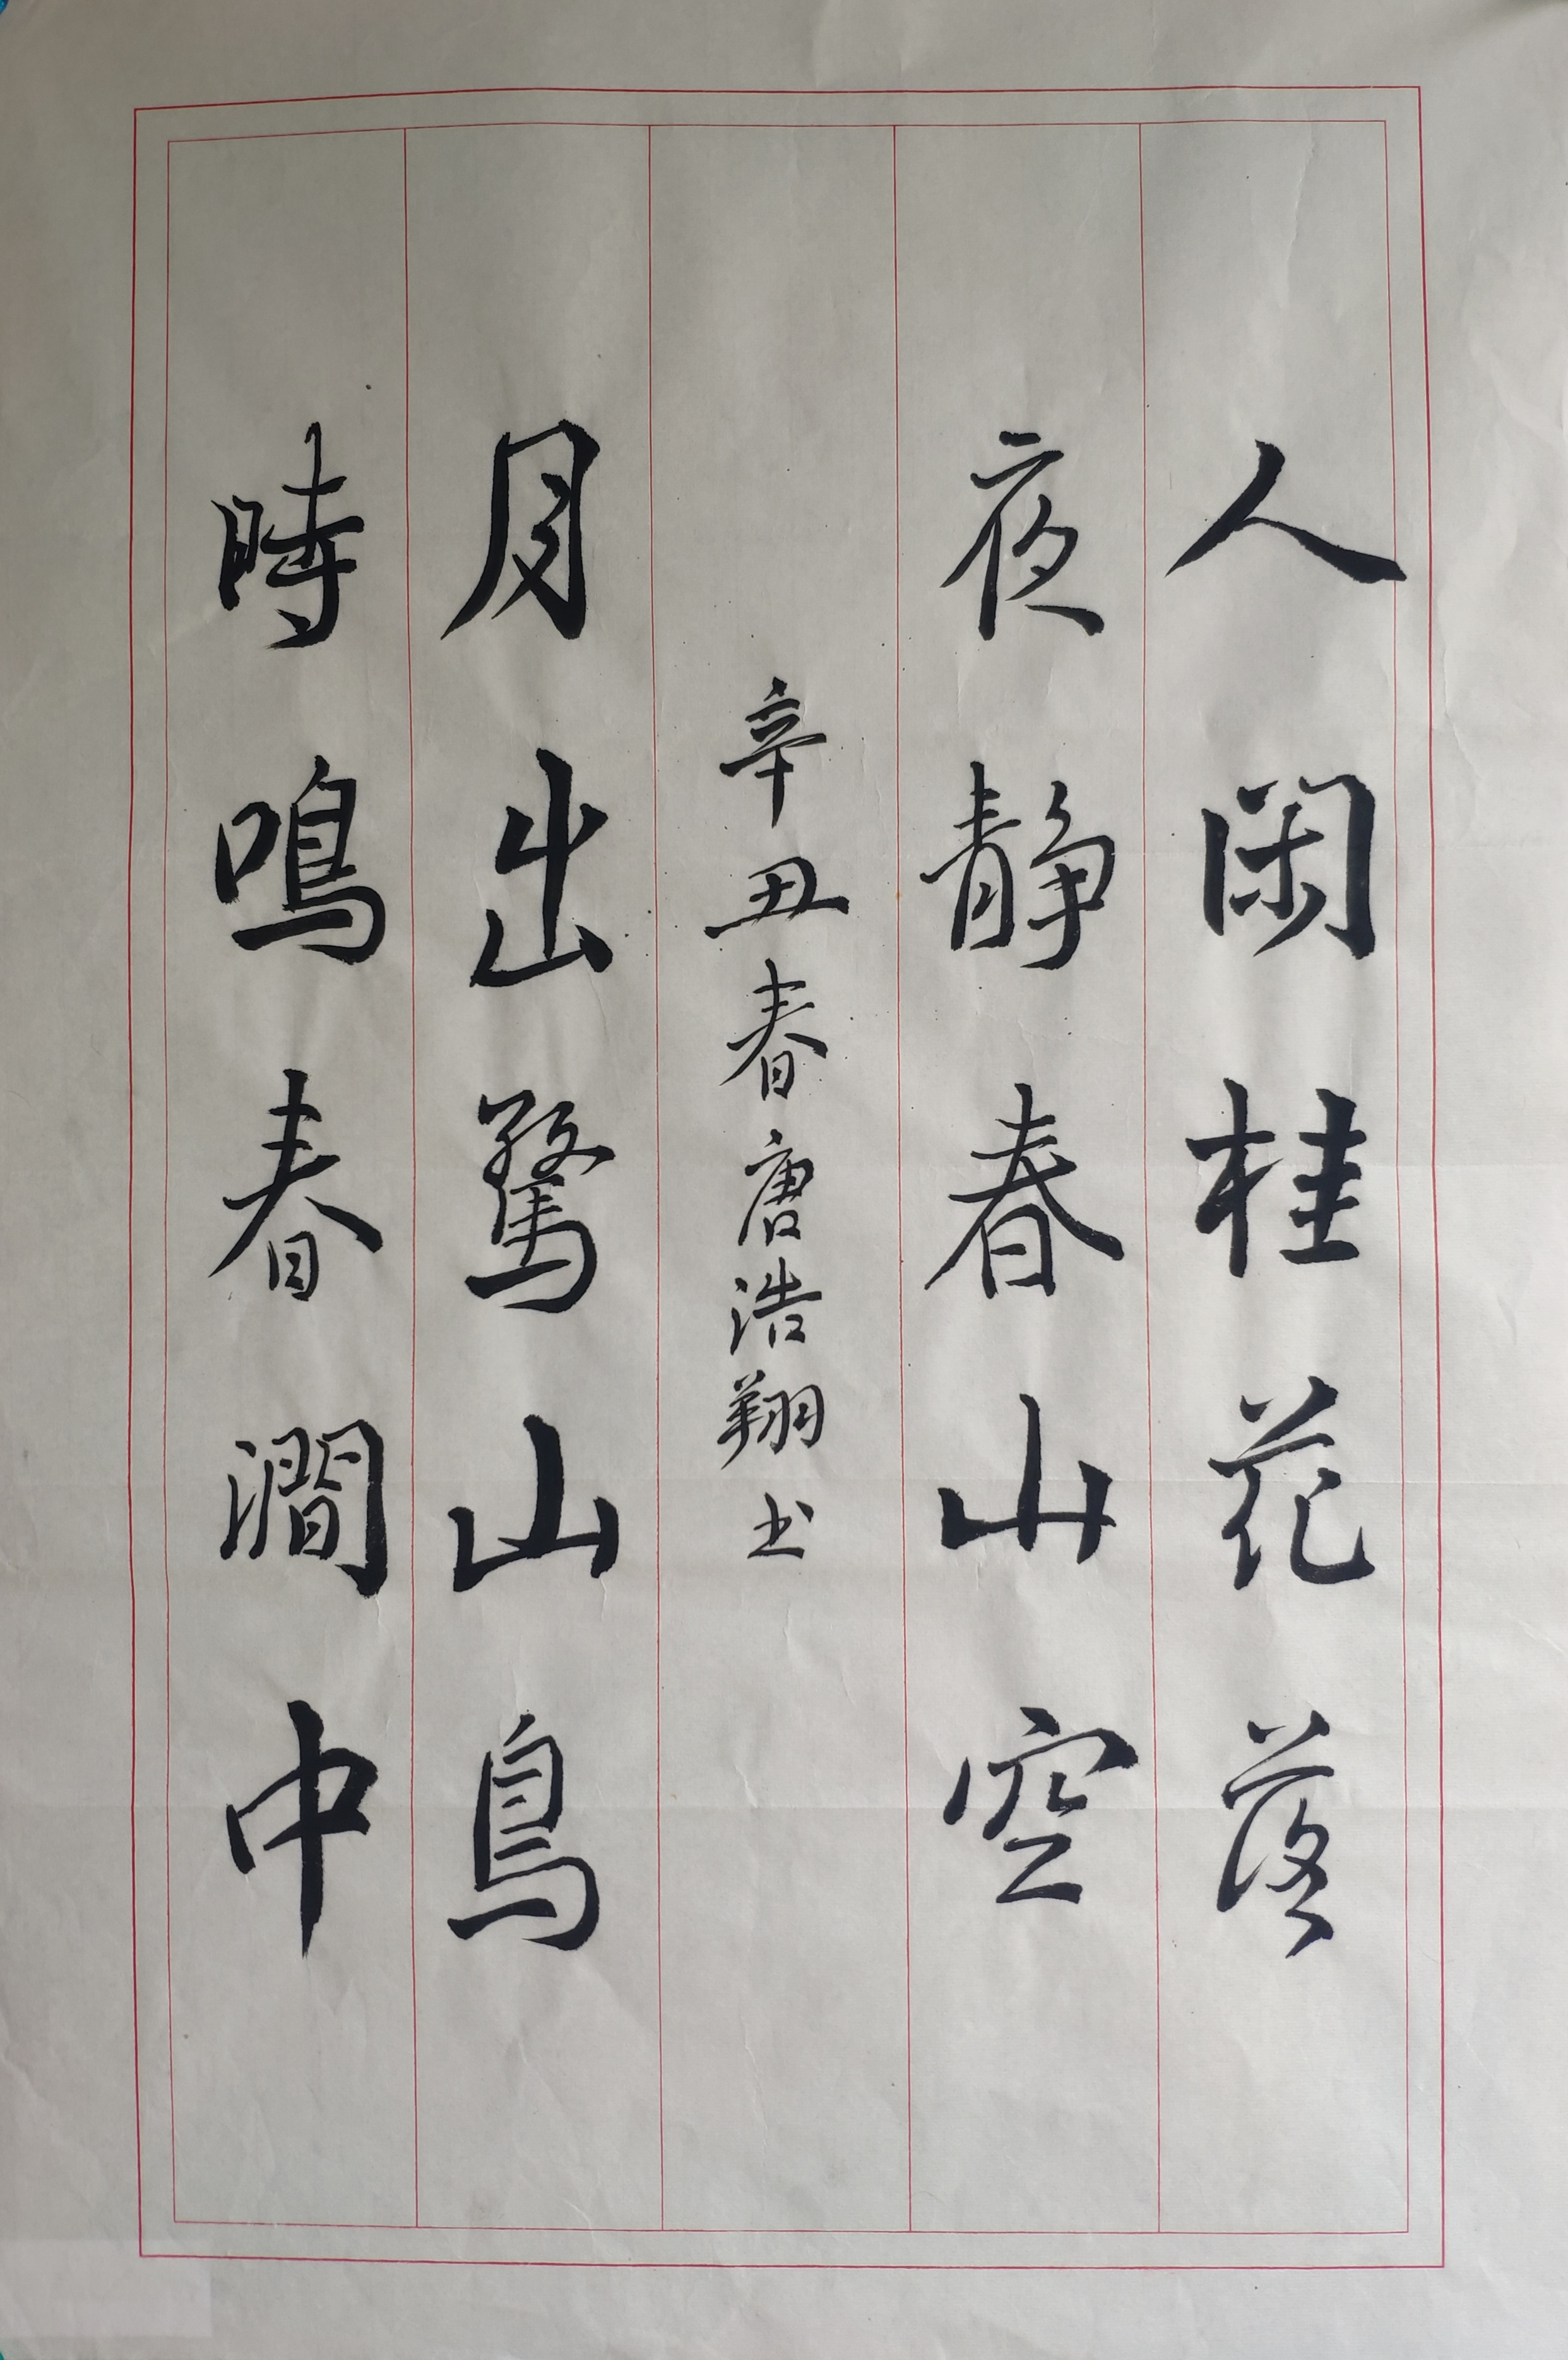 人闲桂花落
夜静春山空
辛丑春唐浩翔书
月出驚山鳥
時鳴春澗中